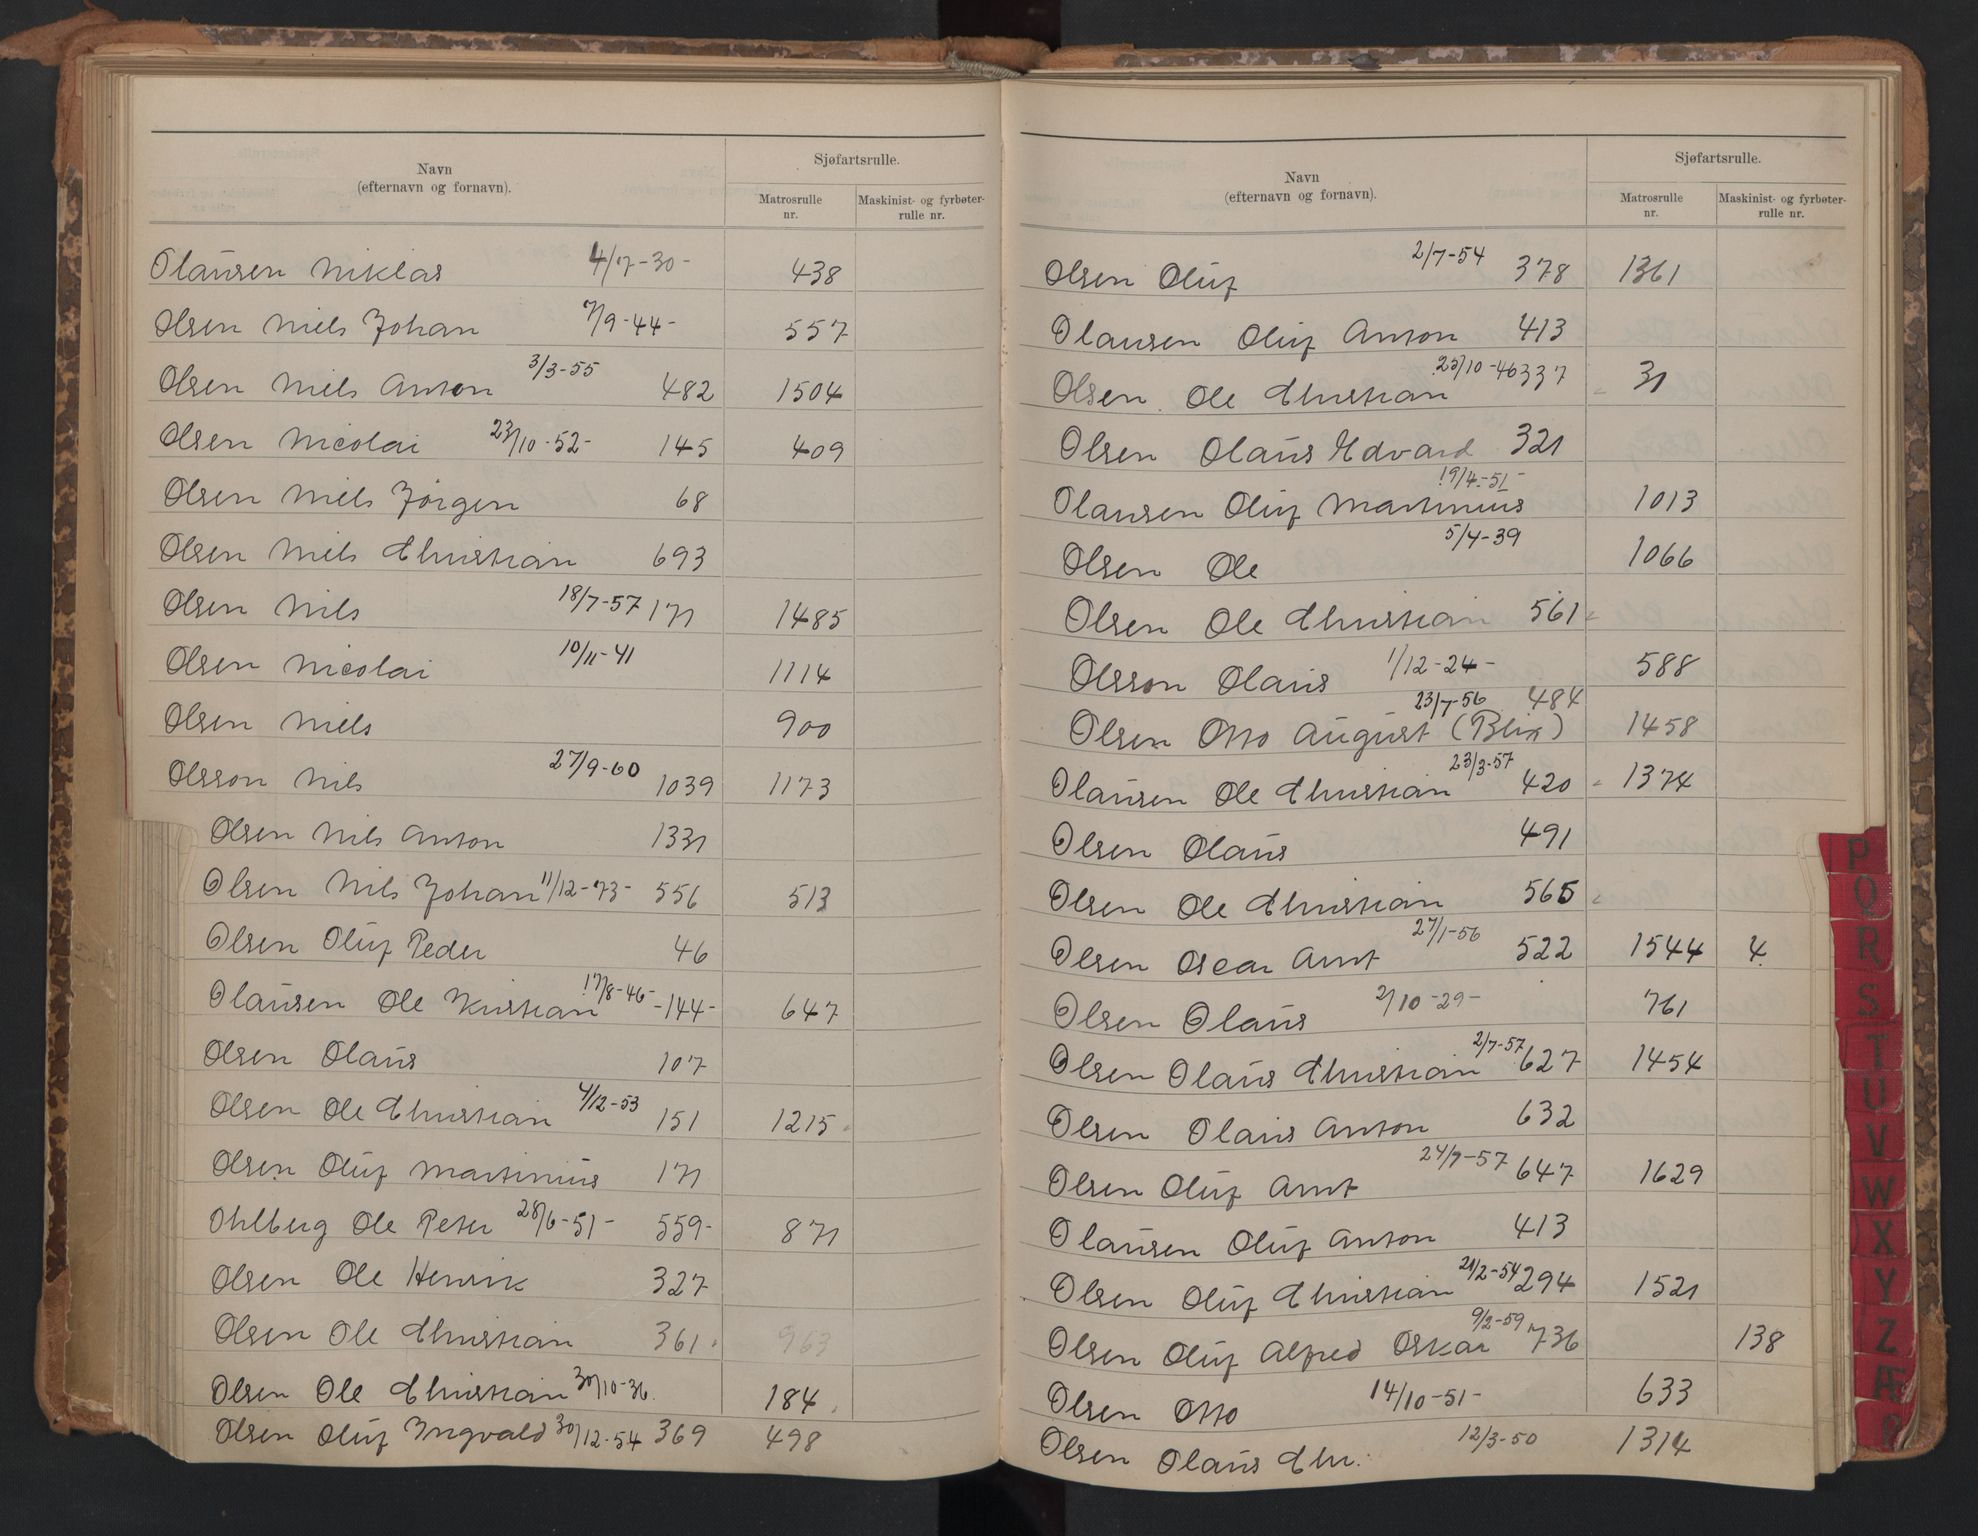 Navn
(efternavn og fornavn).
Sjøfartsrulle.
Matrosrulle nr.
Maskinist- og fyrbøter-rulle nr.
Olausen Niklas 4/7-30- 438
Olsen Niels Johan 7/9-44- 557
Olsen Niels Anton 3/3-55 482 1504
Olsen Nicolai 23/10-52- 145 409
Olsen Niels Jørgen 68
Olsen Niels Christian 693
Olsen Nils 18/7-57 171 1485
Olsen Nicolai 10/11-41 1114
Olsen Niels 900
Olsson Nils 27/9-60 1039 1173
Olsen Nils Anton 1331
Olsen Nils Johan 11/12-73- 556 513
Olsen Oluf Peder 46
Olausen Ole Kristian 17/8-46- -144- 647
Olsen Olaus 107
Olsen Ole Christian 4/12-53 151 1215
Olsen Oluf Martinius 171
Ohlberg Ole Peter 28/6-51- 559- 871
Olsen Ole Henrik 327
Olsen Ole Christian 361. 963
Olsen Ole Christian 30/10-36. 184
Olsen Oluf Ingvald 30/12-54 369 498
Navn
(efternavn og fornavn).
Sjøfartsrulle.
Matrosrulle nr.
Maskinist- og fyrbøter-rulle nr.
Olsen Oluf 2/7-54 378 1361
Olausen Oluf Anton 413
Olsen Ole Christian 25/10-46 337 31
Olsen Olaus Edvard 321
Olausen Oluf Martinius 19/4-51- 1013
Olsen Ole 5/4-39 1066
Olsen Ole Christian 561
Olsson Olaus 1/12-24- 588
Olsen Otto August (Blix) 23/7-56 484 1458
Olausen Ole Christian 23/3-57 420 1374
Olsen Olaus 491
Olsen Ole Christian 565
Olsen Oscar Arnt 27/1-56 522 1544 4
Olsen Olaus 2/10-29- 761
Olsen Olaus Christian 2/7-57 627 1454
Olsen Olaus Anton 632
Olsen Oluf Arnt 24/9-57 647 1629
Olausen Oluf Anton 413
Olsen Oluf Christian 21/2-54 294 1521
Olsen Oluf Alfred Oskar 9/2-59 736 138
Olsen Otto 14/10-51- 633
Olsen Olaus Chr. 12/3-50 1314
P
Q
R
S
T
U
V
W
X
Y
Z
Æ